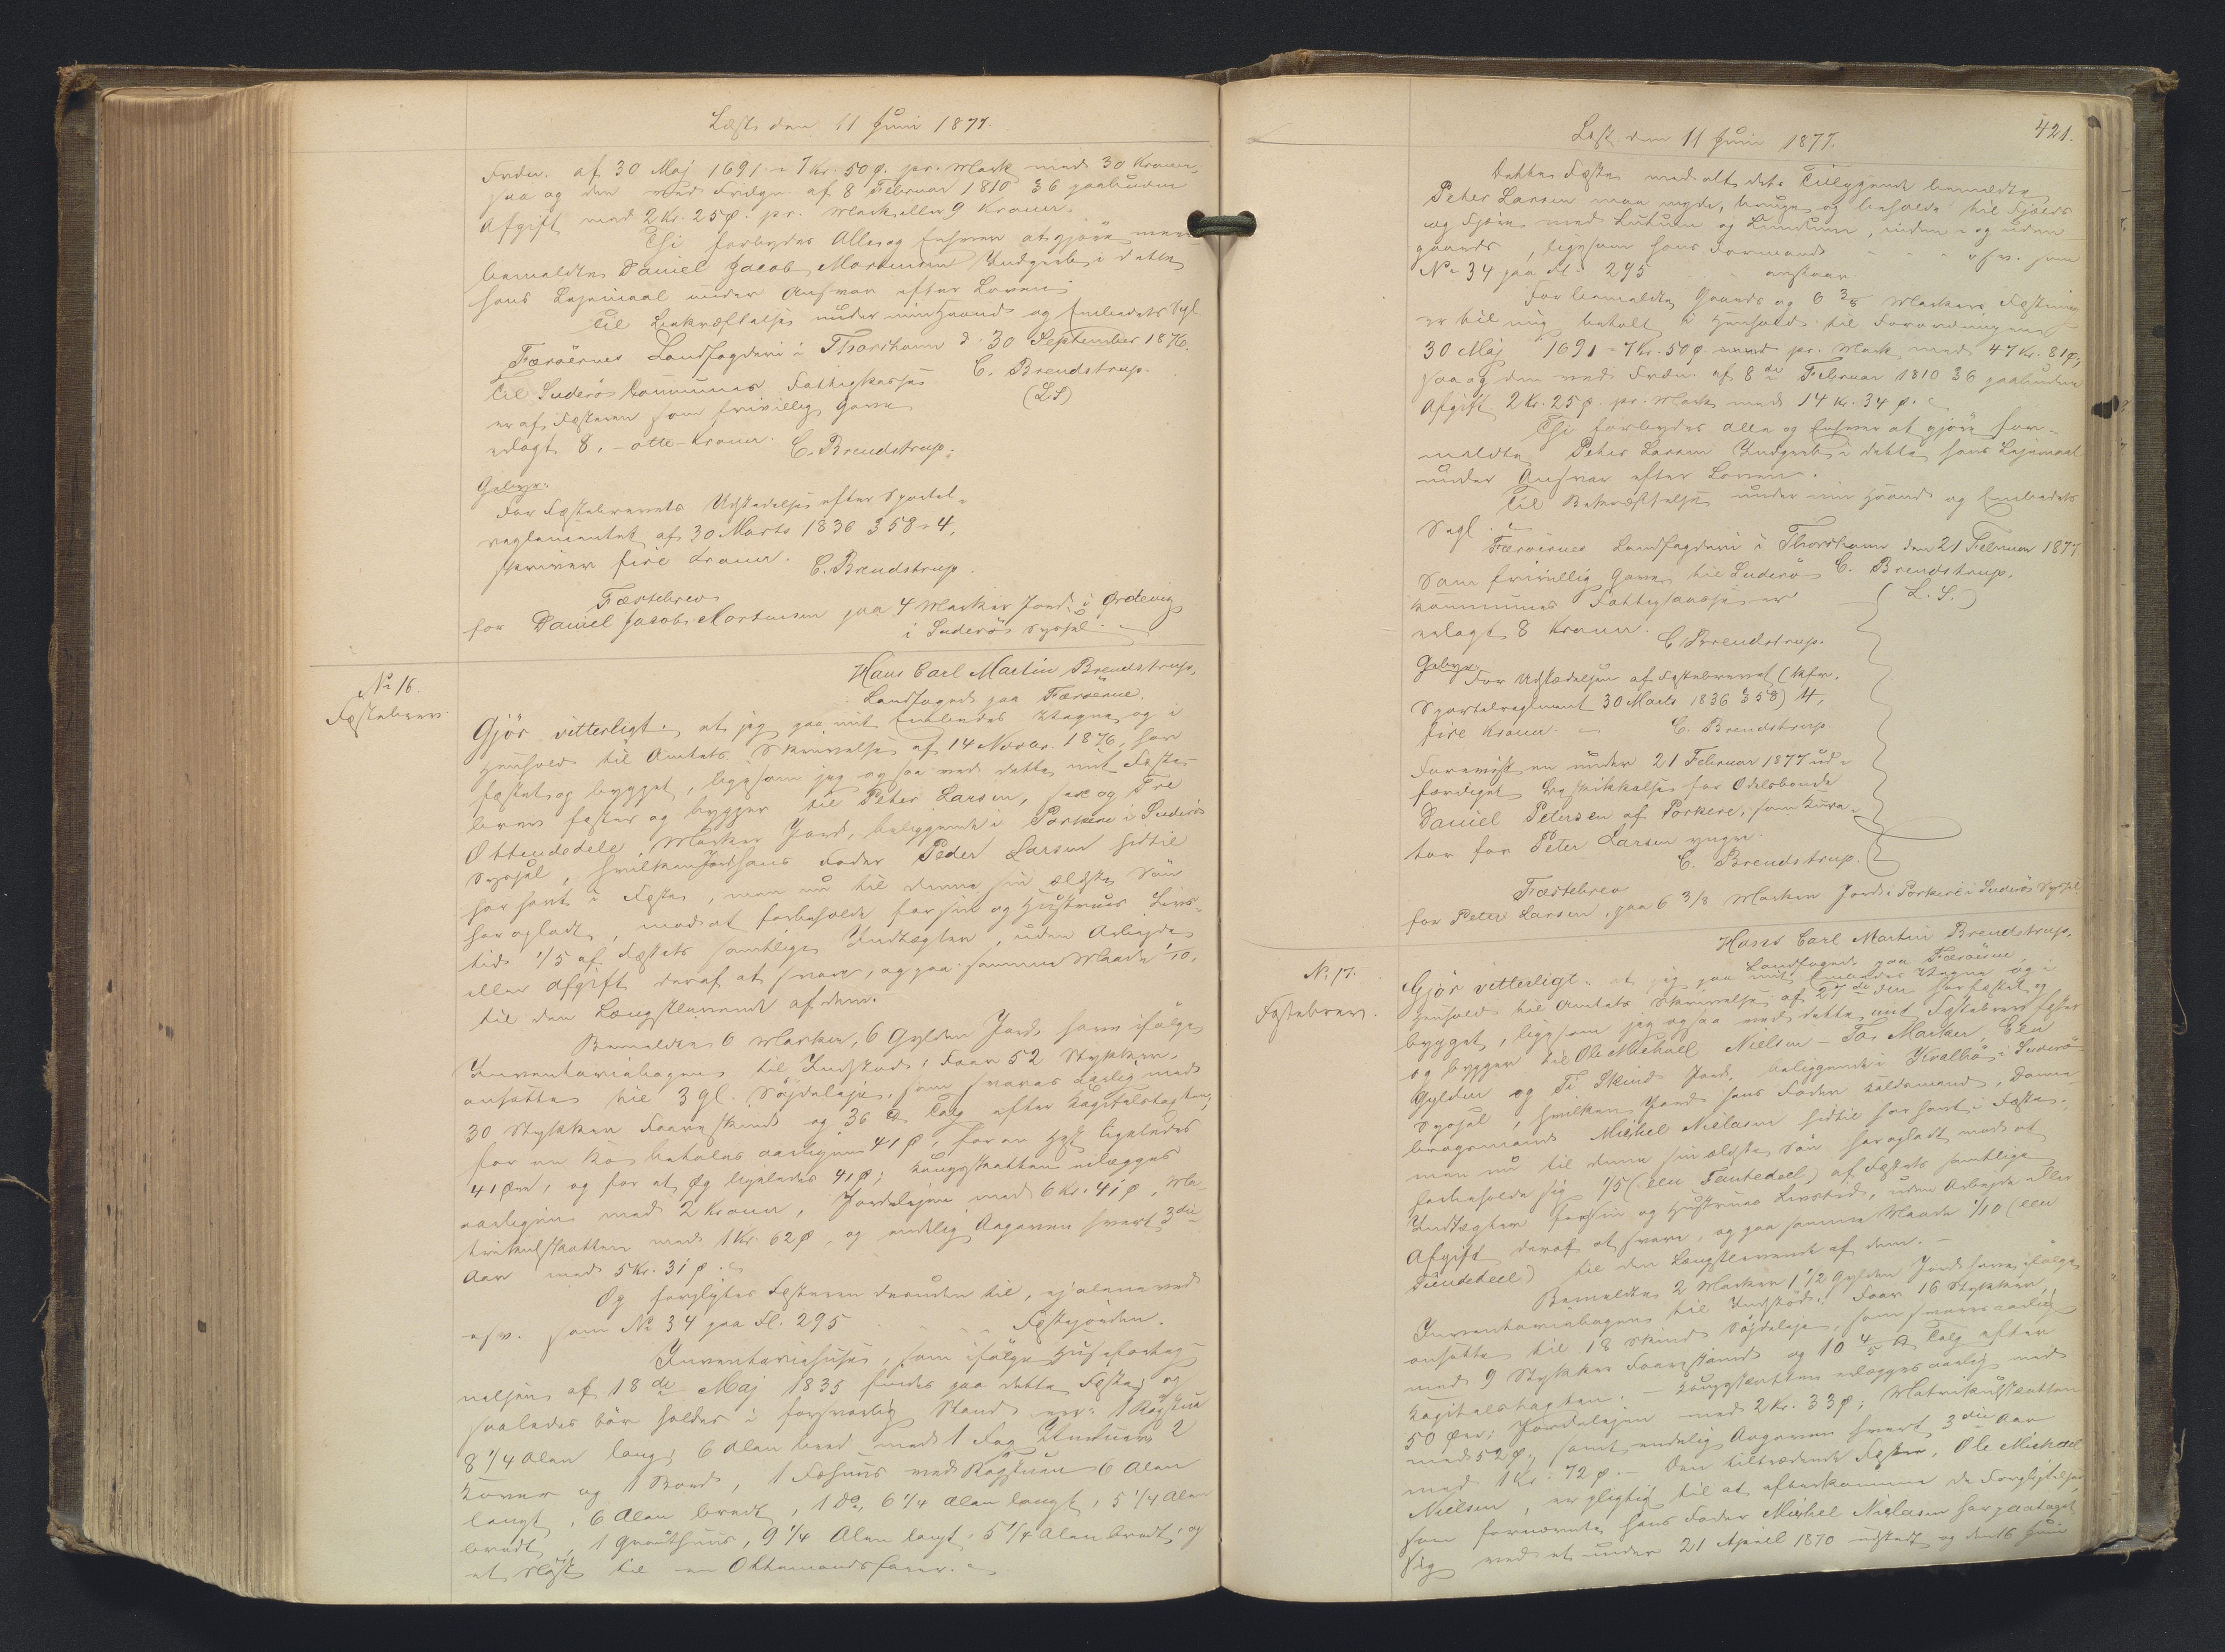 Læst den 11 Juni 1877.
Frdn. af 30 Maj 1691 = 7 Kr. 50 ø. pr. Mark med 30 Kroner,
saa og den ved Frdgn. af 8 Februar 1810 § 6 paabudne
Afgift med 2 Kr. 25 ø. pr. Mark, eller 9 Kroner.
Thi forbydes Alle og Enhver at gjøre
bemeldte Daniel Jacob Mortensen Indgreb i dette
hans Lejemaal under Ansvar efter Loven.
Til Bekræftelse under min Haand og Embedets Segl
Færøernes Landfogderi i Thorshavn d. 30 September 1876.
C. Brendstrup.
(L.S)
Til Suderø Communes Fattigkasse
er af Fæsteren som frivillig Gave
erlagt 8, - otte - Kroner.
C. Brendstrup.
Gebyr:
For Fæstebrevets Udstedelse efter Sportel-
reglementet af 30 Marts 1836 § 58 = 4,
skriver fire Kroner.
C. Brendstrup.
Fæstebrev
for Daniel Jacob Mortensen paa 4 Marker Jord i Ørdevig
i Suderø Syssel.
No 16.
Fæstebrev.
Hans Carl Martin Brendstrup,
Landfoged paa Færøerne.
Gjør vitterligt: at jeg paa mit Embedes Vegne og i
Henhold til Amtets Skrivelse af 14 Novbr. 1876, har
fæstet og bygget, ligesom jeg ogsaa ved dette mit Fæste-
brev fæster og bygger til Peter Larsen, sex og Tre
Ottendedele Marker Jord, beliggende i Porkere i Suderø
Syssel, hvilken Jord hans Fader Peder Larsen hidtil
har havt i Fæste, men nu til denne sin ældste Søn
har opladt, mod at forbeholde for sin og Hustrues Livs-
tid 1/5 af Fæstets samtlige Indtægter, uden Arbejde
eller Afgift deraf at svare, og paa samme Maade 1/10,
til den Længstlevende af dem.
Bemeldte 6 Marker, 6 Gylden Jord have ifølge
Inventariebogen til Indstød: Faar 52 Stykker,
ansatte til 3 gl. Søjdeleje, som svares aarlig med
30 Stykker Faareskind og 36 ℔ Talg efter Kapitelstaxten;
for en Ko betales aarligen 41 ø, for en Hest ligeledes
41 Øre, og for et Øg ligeledes 41 ø; Kongsskatten erlægges
aarligen med 2 Kroner, Jordelejen med 6 Kr. 41 ø, Ma-
trikulskatten med 1 Kr. 62 ø, og endelig Aagaven hvert 3die
Aar med 5 Kr. 31 ø.
Og forpligtes Fæsteren desuden til, ej alene ved
osv. som No 34 paa Fl. 295 - - - Fæstejorden.
Inventariehuse, som ifølge Husefortegnelsen
nelsen af 18de Maj 1835 findes paa dette Fæste og
saaledes bør holdes i forsvarlig Stand ere: 1 Røgstue
8 1/4 Alen lang, 6 Alen bred med 1 Fag Vinduer, 2
Kover og 1 Bord, 1 Fæhuus ved Røgstuen 6 Alen
langt, 6 Alen bredt, 1 do, 6 1/4 Alen langt, 5 1/4 Alen
bredt, 1 Qvæthuus, 9 1/4 Alen langt, 5 1/4 Alen bredt, og
et Nøst til en Ottemandsfarer.
421.
Læst den 11 Juni 1877.
Dette Fæste med alt dets Tilliggende bemeldte
Peter Larsen maa nyde, bruge og beholde til Fjælds
og Fjære med Lutum og Lundum, inden og uden
gaards, ligesom hans Formænd - - - osv. som
No 34 paa Fl. 295 - anstaar
For bemeldte Gaards og 6 3/8 Markers Fæstning
er til mig betalt i Henhold til Forordningen
30 Maj 1691 = 7 Kr. 50 ø. pr. Mark med 47 Kr. 81 ø,
saa og den ved Frdn. af 8de Februar 1810 § 6 paabudne
Afgift 2 Kr. 25 ø. pr. Mark med 14 Kr. 34 ø.
Thi forbydes Alle og Enhver at gjøre for-
meldte Peter Larsen Indgreb i dette hans Lejemaal
under Ansvar efter Loven.
Til Bekræftelse under min Haand og Embedets
Segl.
Færøernes Landfogderi i Thorshavn den 21 Februar 1877
C. Brendstrup.
(L. S.)
Som frivillig Gave til Suderø
Kommunes Fattigkasse er
erlagt 8 Kroner.
C. Brendstrup.
Gebyr.
For Udstædelsen af Fæstebrevet (
Sportelreglement 30 Marts 1836 § 58) 4,
fire Kroner.
C. Brendstrup.
Forevist en under 21 Februar 1877 ud-
færdiget Beskikkelse for Odelsbonde
Daniel Petersen af Porkere, som Kura-
tor for Peter Larsen yngre.
C. Brendstrup.
Fæstebrev
for Peter Larsen, paa 6 3/8 Marker Jord i Porkere i Suderø Syssel
No 17.
Fæstebrev.
Hans Carl Martin Brendstrup,
Landfoged paa Færøerne,
Gjør vitterligt: at jeg paa mit Embedes Vegne og i
Henhold til Amtets Skrivelse af 27de har fæstet og
bygget, ligesom jeg ogsaa ved dette mit Fæstebrev fæster
og bygger til Ole Michael Nielsen - To Marker, Een
Gylden og Ti Skind Jord, beliggende i Kvalbø i Suderø
Syssel, hvilken Jord hans Fader Kaldsmand, Danne-
brogsmand Michel Nielsen hidtil har havt i Fæste,
men nu til denne sin ældste Søn har opladt mod at
forbeholde sig 1/5 (een Femtedeel) af Fæstets samtlige
Indtægter for sin og Hustrues Livstid, uden Arbejde eller
Afgift deraf at svare, og paa samme Maade 1/10 (een
Tiendedeel) til den Længstlevende af dem.
Bemeldte 2 Marker 1 1/2 Gylden Jord have ifølge
Inventariebogen til Indstød: Faar 16 Stykker,
ansatte til 18 Skind Søjdeleje, som svares aarlig
med 9 Stykker Faareskind og 10 4/5 ℔ Talg efter
Kapitelstaxten. - Kongsskatten erlægges aarlig med
50 Øre; Jordelejen med 2 Kr. 33 ø; Matrikulskatten
med 52 ø, samt endelig Aagaven hvert 3die Aar
med 1 Kr. 72 ø. - Den tiltrædende Fæster, Ole Michael
Nielsen, er pligtig til at efterkomme de Forpligtelser
som fornævnte hans Fader Michel Nielsen har paataget
sig ved et under 21 April 1870 udstedt og den 16 Juni